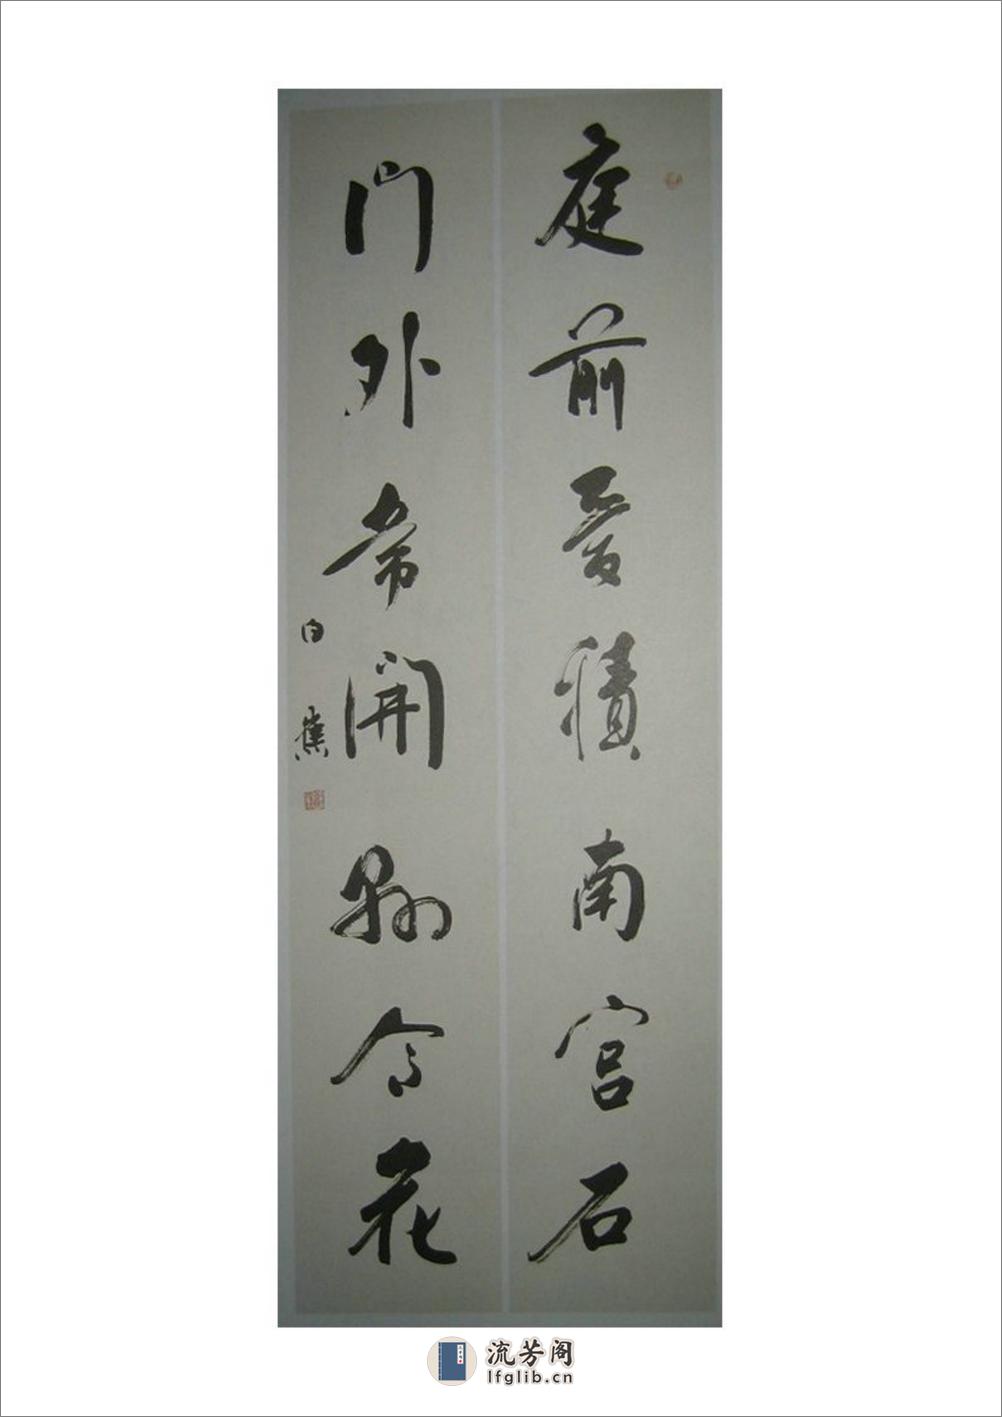 庭前積南宫石
门外常開縣令花
白蕉
流芳阁
lfglib.cn